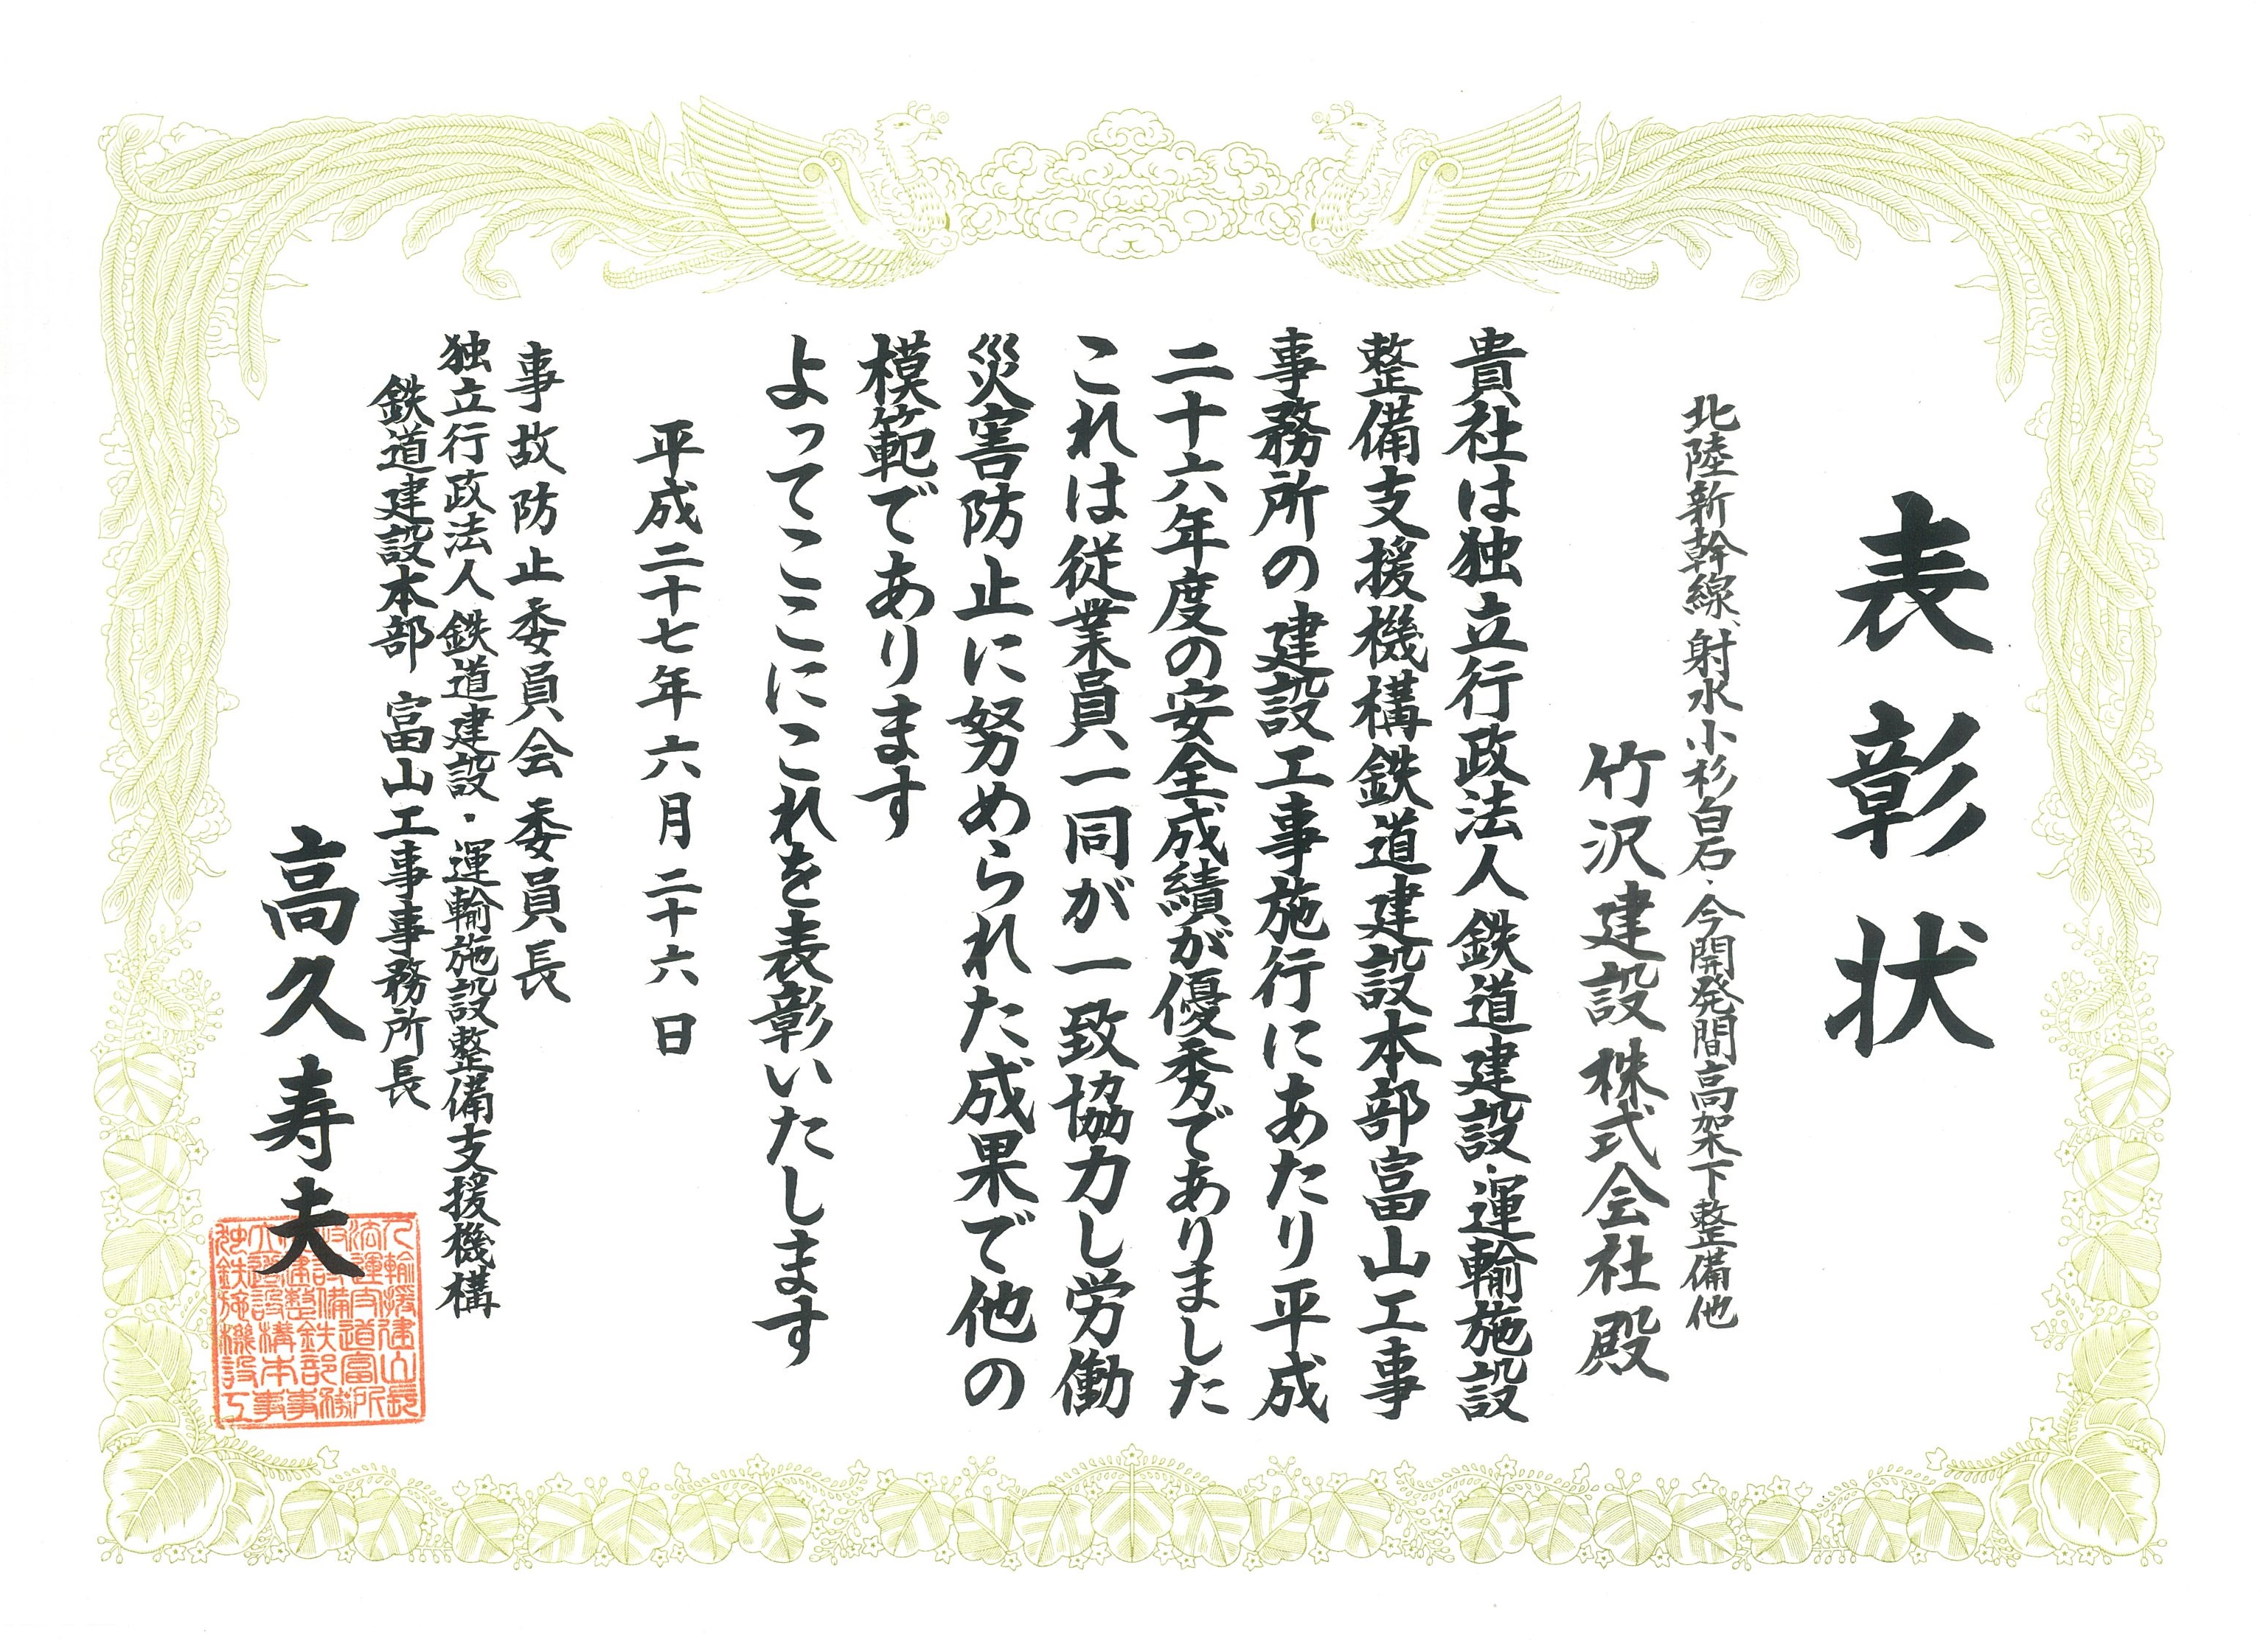 表彰状
北陸新幹線、射水小杉白石・今開発間高架下整備他
竹沢建設株式会社殿
貴社は独立行政法人鉄道建設・運輸施設
整備支援機構鉄道建設本部富山工事
事務所の建設工事施行にあたり平成
二十六年度の安全成績が優秀でありました
これは従業員一同が一致協力し労働
災害防止に努められた成果で他の
模範であります
よってここにこれを表彰いたします
平成二十七年六月二十六日
事故防止委員会委員長
独立行政法人鉄道建設・運輸施設整備支援機構
鉄道建設本部 富山工事事務所長
高久寿夫